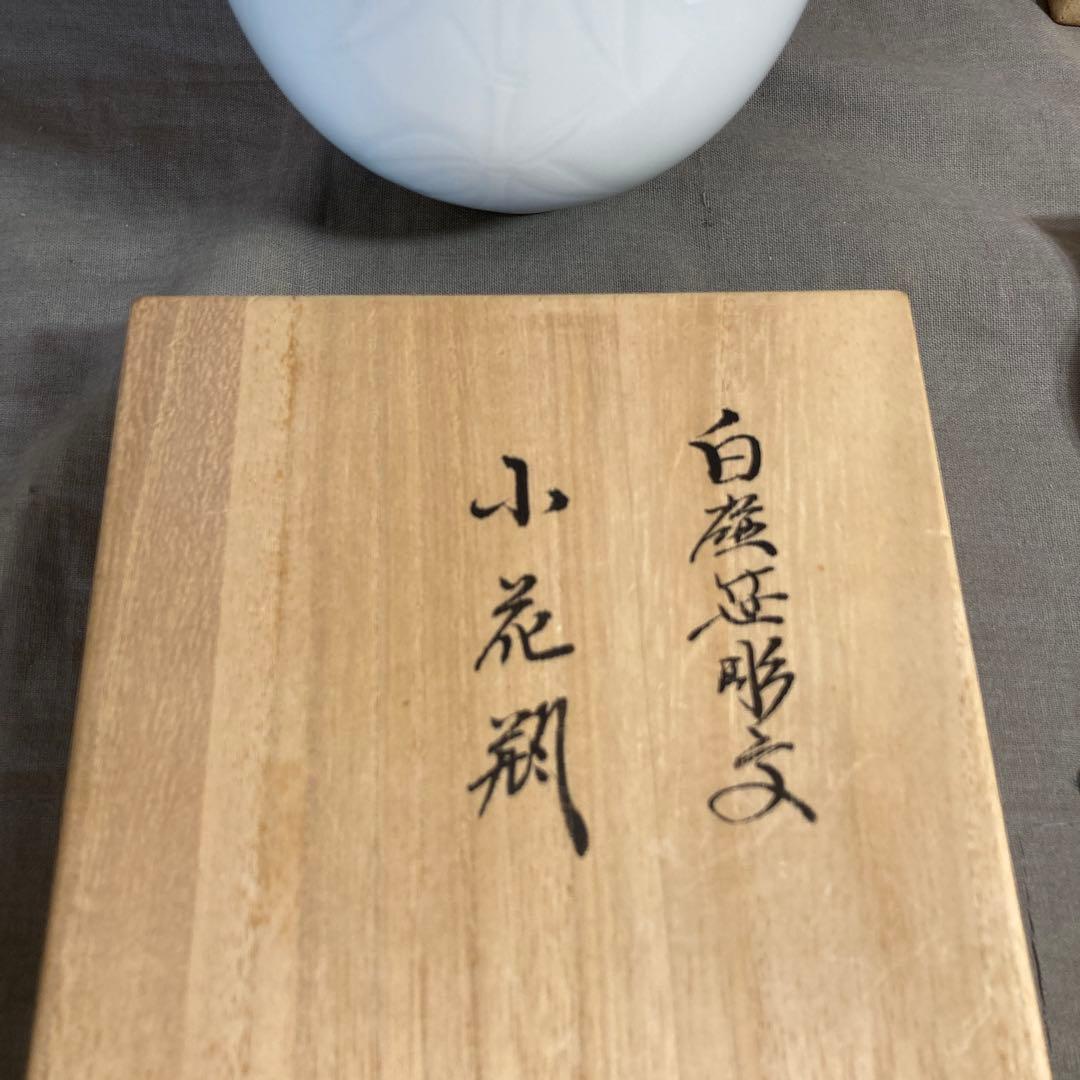 白磁笹彫文
小花瓶